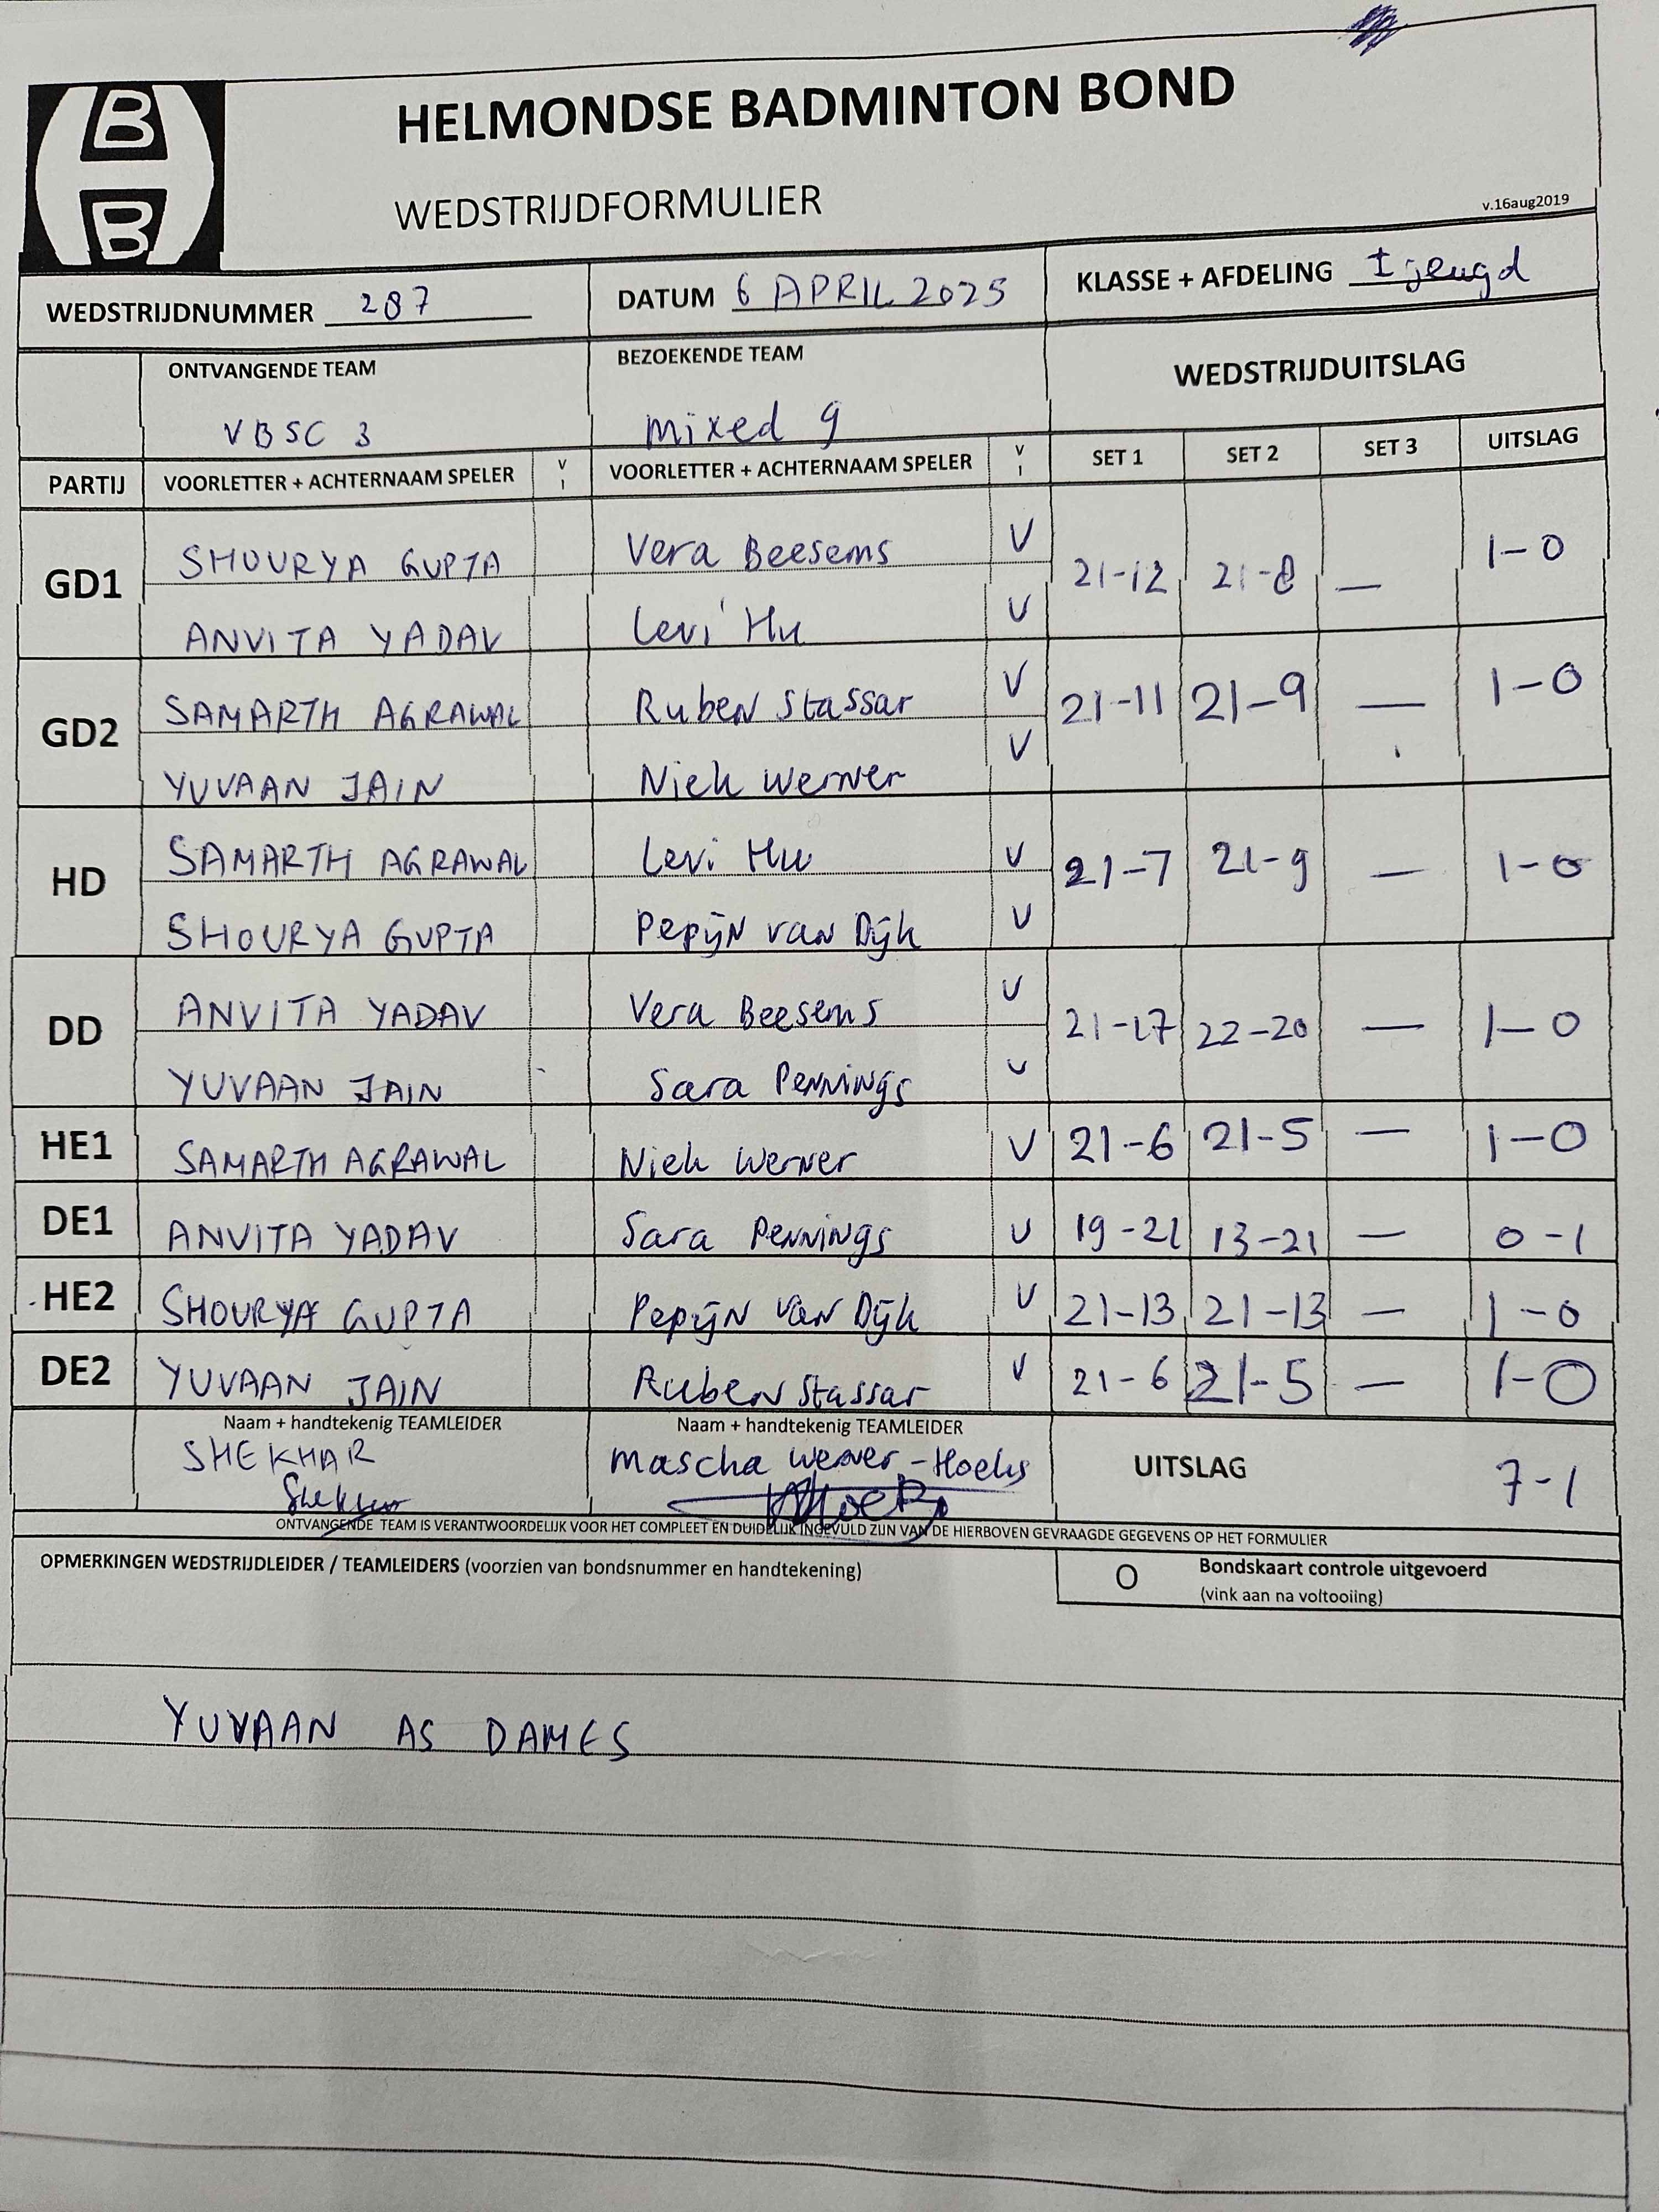 B
B
HELMONDSE BADMINTON BOND
WEDSTRIJDFORMULIER
v.16aug2019
WEDSTRIJDNUMMER 287 DATUM 6 APRIL 2025 KLASSE + AFDELING I jeugd
ONTVANGENDE TEAM BEZOEKENDE TEAM WEDSTRIJDUITSLAG
VBSC 3 mixed 9
PARTIJ VOORLETTER + ACHTERNAAM SPELER V I VOORLETTER + ACHTERNAAM SPELER V I SET 1 SET 2 SET 3 UITSLAG
GD1 SHOURYA GUPTA Vera Beesems V 21-12 21-8 — 1-0
ANVITA YADAV Levi Hu V
GD2 SAMARTH AGRAWAL Ruben Stassar V 21-11 21-9 — 1-0
YUVAAN JAIN Niek Werner V
HD SAMARTH AGRAWAL Levi Hu V 21-7 21-9 — 1-0
SHOURYA GUPTA Pepijn van Dijk V
DD ANVITA YADAV Vera Beesems V 21-17 22-20 — 1-0
YUVAAN JAIN Sara Pennings V
HE1 SAMARTH AGRAWAL Niek Werner V 21-6 21-5 — 1-0
DE1 ANVITA YADAV Sara Pennings V 19-21 13-21 — 0-1
HE2 SHOURYA GUPTA Pepijn van Dijk V 21-13 21-13 — 1-0
DE2 YUVAAN JAIN Ruben Stassar V 21-6 21-5 — 1-0
Naam + handtekenig TEAMLEIDER Naam + handtekenig TEAMLEIDER
SHEKHAR Mascha Werner-Hoeks UITSLAG 7-1
Shekhar
ONTVANGENDE TEAM IS VERANTWOORDELIJK VOOR HET COMPLEET EN DUIDELIJK INGEVULD ZIJN VAN DE HIERBOVEN GEVRAAGDE GEGEVENS OP HET FORMULIER
OPMERKINGEN WEDSTRIJDLEIDER / TEAMLEIDERS (voorzien van bondsnummer en handtekening) O Bondskaart controle uitgevoerd
(vink aan na voltooiing)
YUVAAN AS DAMES